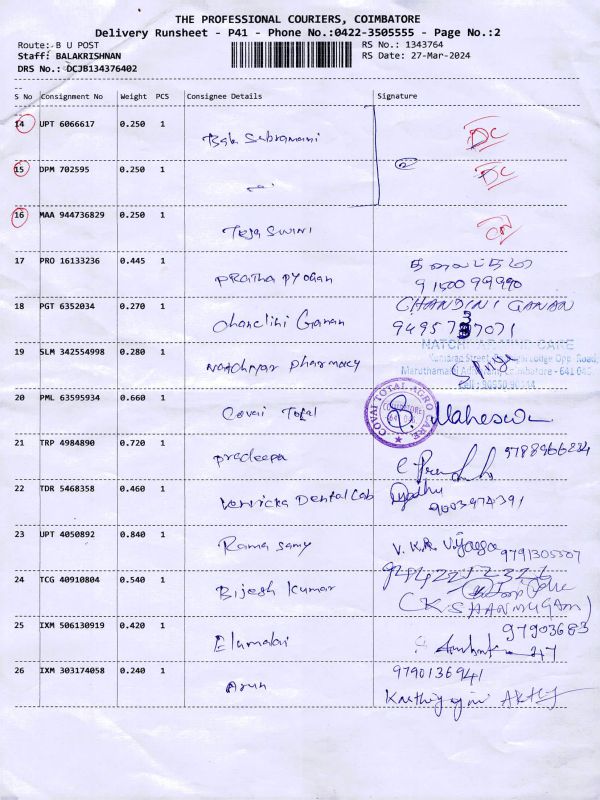 THE PROFESSIONAL COURIERS, COIMBATORE
Delivery Runsheet - P41 - Phone No.:0422-3505555 - Page No.:2
Route: B U POST RS No.: 1343764
Staff: BALAKRISHNAN RS Date: 27-Mar-2024
DRS No.: DCJB134376402
S No Consignment No Weight PCS Consignee Details Signature
14 UPT 6066617 0.250 1 DC
15 DPM 702595 0.250 1 DC
16 MAA 944736829 0.250 1 Teja Swini
17 PRO 16133236 0.445 1
91500 99990
18 PGT 6352034 0.270 1 Chandini Ganan CHANDINI GANAN
19 SLM 342554998 0.280 1 Natchiyar Pharmacy
20 PML 63595934 0.660 1 Covai Total COVAI TOTAL AGRO CARE COIMBATORE
21 TRP 4984890 0.720 1 Pradeepa
22 TDR 5468358 0.460 1 Dental Lab
9003974391
23 UPT 4050892 0.840 1 Rama Samy 9791305507
24 TCG 40910804 0.540 1 Bijesh Kumar
(K SHANMUGAM)
25 IXM 506130919 0.420 1 Elumalai 97903683
247
26 IXM 303174058 0.240 1 Arun 9790136941